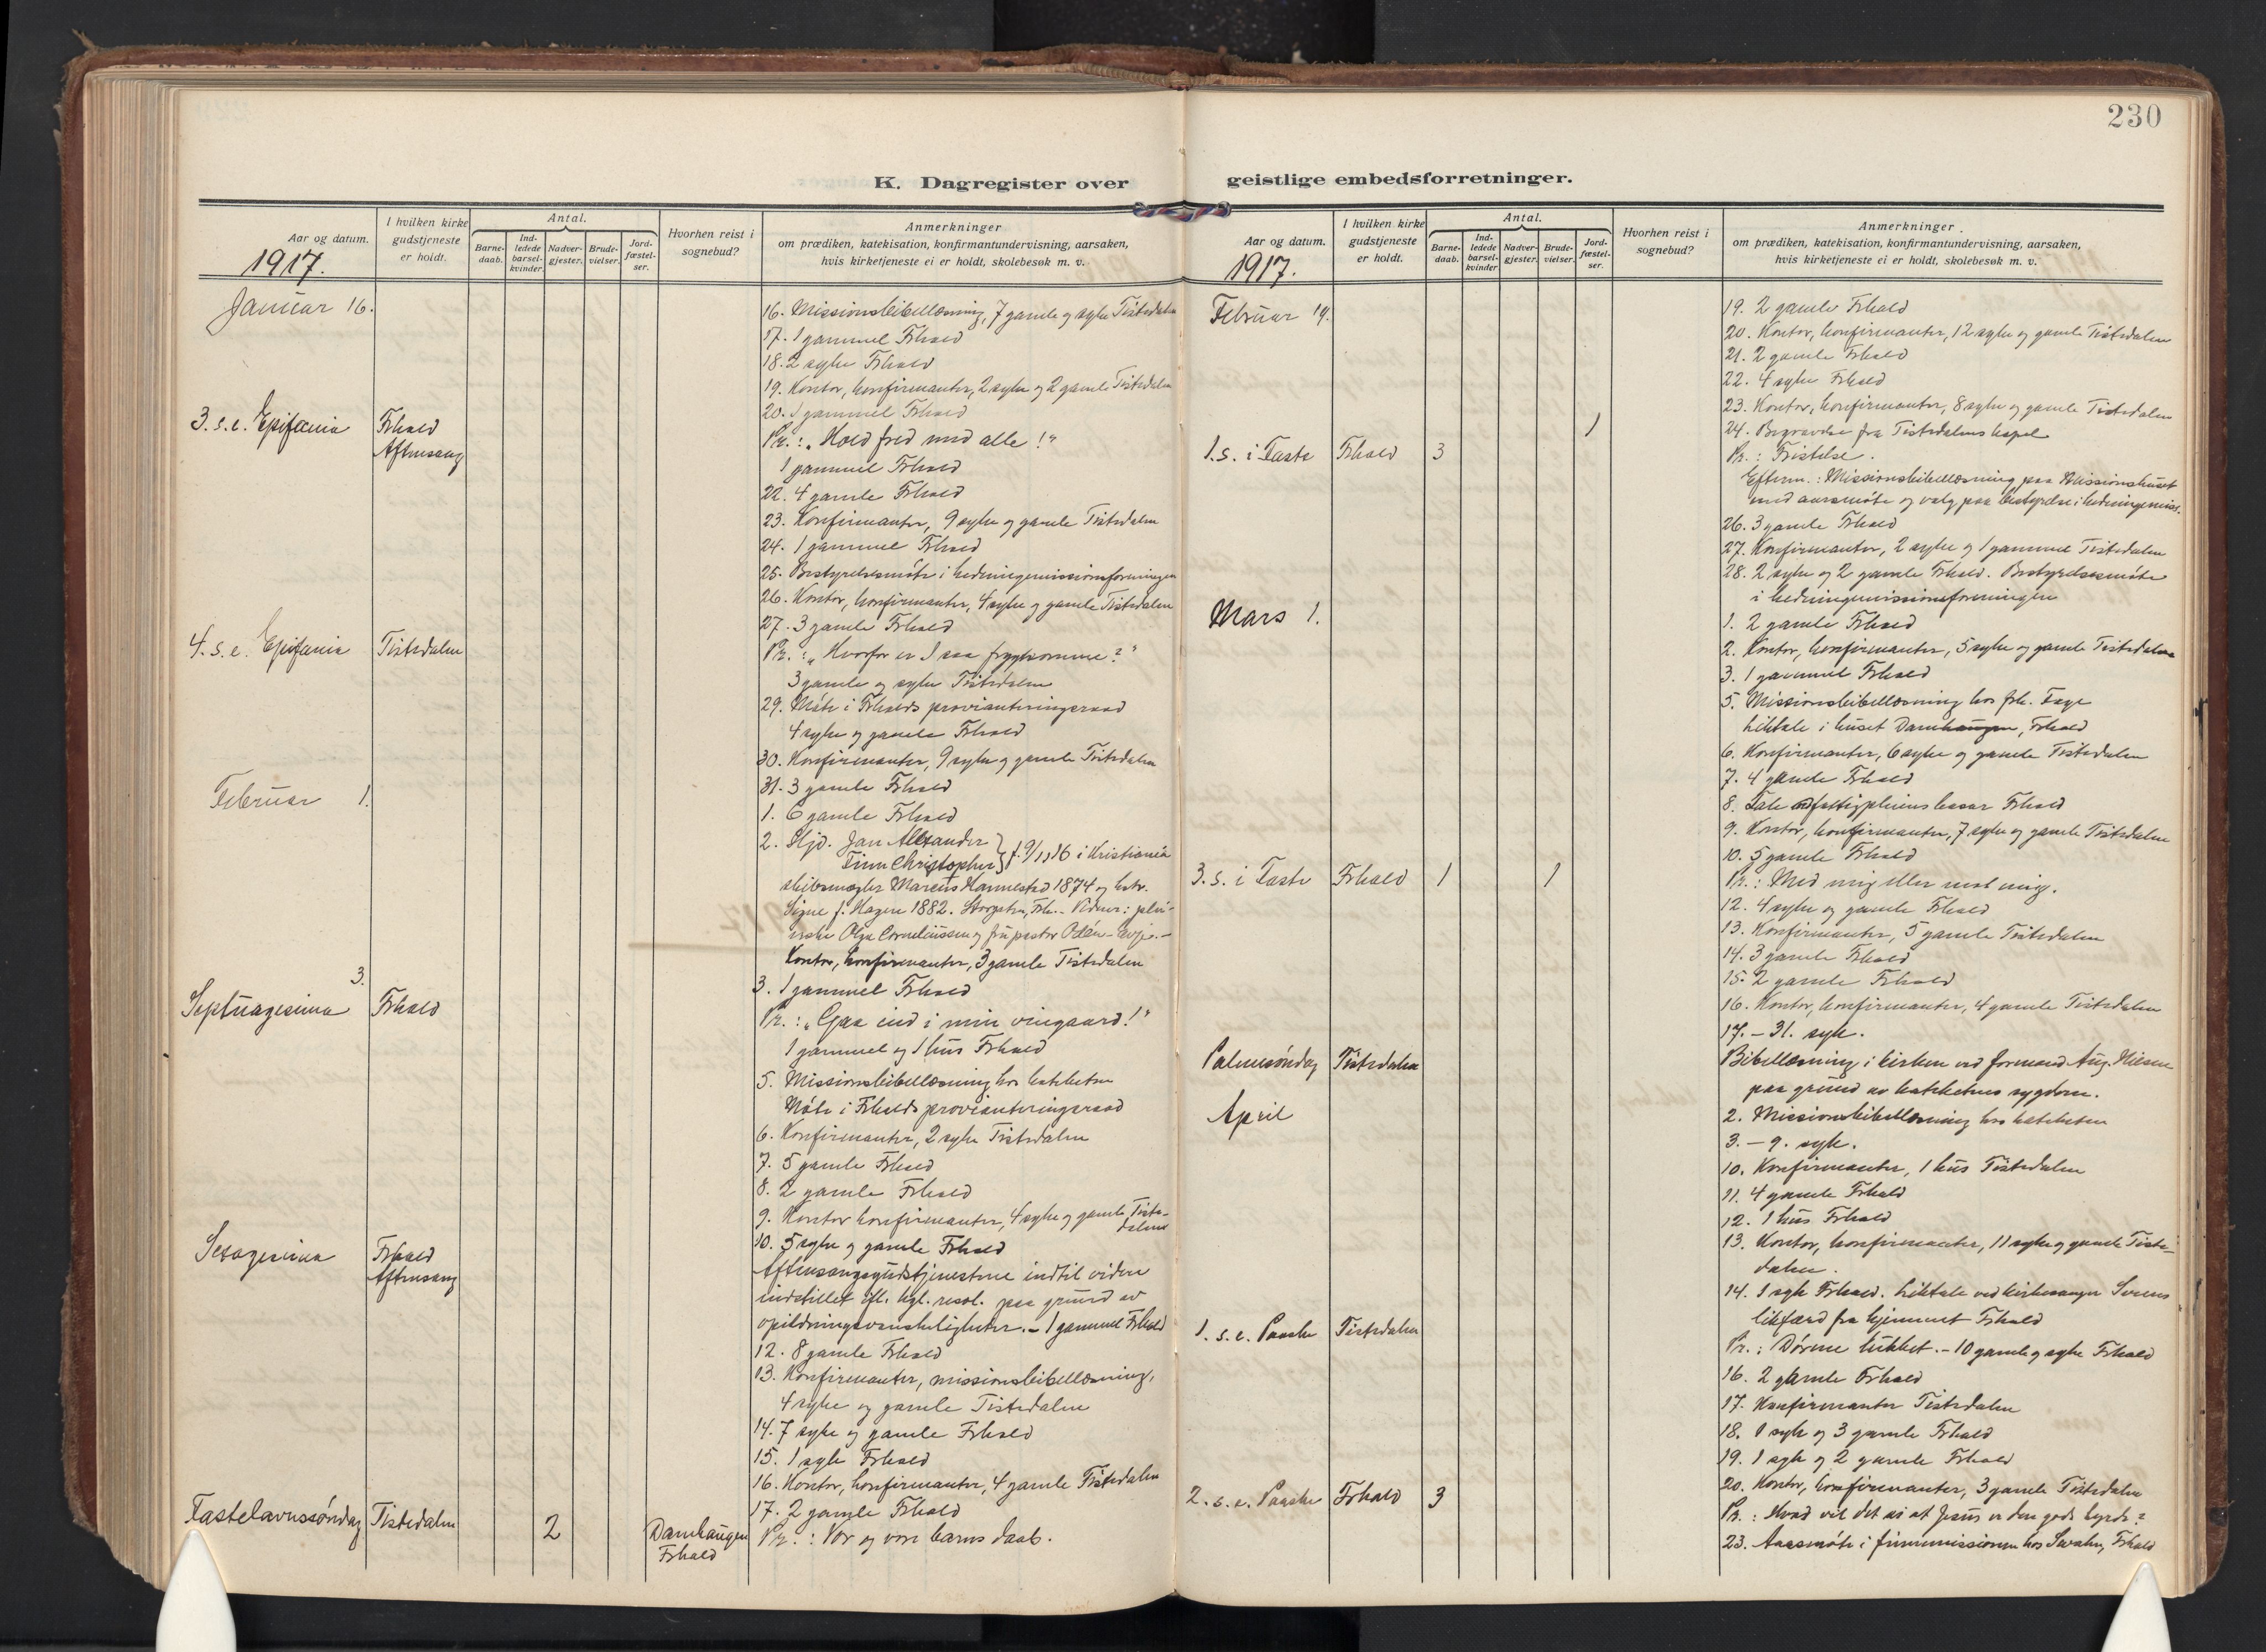 230
K. Dagregister over geistlige embedsforretninger.
Aar og datum.
1917.
I hvilken kirke gudstjeneste er holdt.
Antal.
Barne-daab.
Ind-ledede barsel-kvinder.
Nadver-gjester.
Brude-vielser.
Jord-fæstel-ser.
Hvorhen reist i sognebud?
Anmerkninger
om prædiken, katekisation, konfirmantundervisning, aarsaken,
hvis kirketjeneste ei er holdt, skolebesøk m. v.
Januar 16.
16. Missionsbibellæsning, 7 gamle og syke Tistedalen
17. 1 gammel Frhald
18. 2 syke Frhald
19. Kontor, konfirmanter, 2 syke og 2 gamle Tistedalen
20. 1 gammel Frhald
3. s. e. Epifania Frhald Aftensang
Pr.: „Hold fred med alle!"
1 gammel Frhald
22. 4 gamle Frhald
23. Konfirmanter, 9 syke og gamle Tistedalen
24. 1 gammel Frhald
25. Bestyrelsesmøte i hedningemissionsforeningen
26. Kontor, konfirmanter, 4 syke og gamle Tistedalen
27. 3 gamle Frhald
4. s. e. Epifania Tistedalen
Pr.: „Hvorfor er I saa frygtsomme?"
3 gamle og syke Tistedalen
29. Møte i Frhalds provianteringsraad
4 syke og gamle Frhald
30. Konfirmanter, 9 syke og gamle Tistedalen
31. 3 gamle Frhald
Februar 1.
1. 6 gamle Frhald
2. Hjd. Jan Alexander
Finn Christopher } f. 9/11 16 i Kristiania
skibsmægler Marcus Hannestad 1874 og hstr.
Signe f. Hagen 1882. Storgaten, Frh. - Vidner: plei-
erske Olga Corneliussen og fru pastor Odén-
Kontor, konfirmanter, 3 gamle Tistedalen
3.
3. 1 gammel Frhald
Septuagesima Frhald
Pr.: „Gaa ind i min vingaard!"
1 gammel og 1 hus Frhald
5. Missionsbibellæsning hos kateketen
Møte i Frhalds provianteringsraad
6. Konfirmanter, 2 syke Tistedalen
7. 5 gamle Frhald
8. 2 gamle Frhald
9. Kontor konfirmanter, 4 syke og gamle Tiste-
dalen
10. 5 syke og gamle Frhald
Sexagesima Frhald Aftensang
Aftensangsgudstjenesterne indtil videre
indstillet ifl. kgl. resol. paa grund av
opildningsvanskeligheter. - 1 gammel Frhald
12. 8 gamle Frhald
13. Konfirmanter, missionsbibellæsning,
4 syke og gamle Tistedalen
14. 7 syke og gamle Frhald
15. 1 syk Frhald
16. Kontor, konfirmanter, 4 gamle Tistedalen
17. 2 gamle Frhald
Fastelavnssøndag Tistedalen 2 Damhaugen Frhald
Pr.: Vor og vore barns daab.
Aar og datum.
1917.
I hvilken kirke gudstjeneste er holdt.
Antal.
Barne-daab.
Ind-ledede barsel-kvinder.
Nadver-gjester.
Brude-vielser.
Jord-fæstel-ser.
Hvorhen reist i sognebud?
Anmerkninger.
om prædiken, katekisation, konfirmantundervisning, aarsaken,
hvis kirketjeneste ei er holdt, skolebesøk m. v.
Februar 19.
19. 2 gamle Frhald
20. Kontor, konfirmanter, 12 syke og gamle Tistedalen
21. 2 gamle Frhald
22. 4 syke Frhald
23. Kontor, konfirmanter, 8 syke og gamle Tistedalen
1
24. Begravelse fra Tistedalens kapel
1. s. i Faste Frhald 3
Pr.: Fristelse.
Efterm.: Missionsbibellæsning paa Missionshuset
med aarsmøte og valg paa bestyrelse i hedningemiss.
26. 3 gamle Frhald
27. Konfirmanter, 2 syke og 1 gammel Tistedalen
28. 2 syke og 2 gamle Frhald. Bestyrelsesmøte
i hedningemissionsforeningen
Mars 1.
1. 2 gamle Frhald
2. Kontor, konfirmanter, 5 syke og gamle Tistedalen
3. 1 gammel Frhald
5. Missionsbibellæsning hos frk. Faye
Liktale i huset Damhaugen, Frhald
6. Konfirmanter, 6 syke og gamle Tistedalen
7. 4 gamle Frhald
8. Tale ved fattigpleiens basar Frhald
9. Kontor, konfirmanter, 7 syke og gamle Tistedalen
10. 5 gamle Frhald
3. s. i Faste Frhald 1 1
Pr.: Med mig eller mot mig.
12. 4 syke og gamle Frhald
13. Konfirmanter, 5 gamle Tistedalen
14. 3 gamle Frhald
15. 2 gamle Frhald
16. Kontor, konfirmanter, 4 gamle Tistedalen
17. - 31. syk.
Palmesøndag Tistedalen
Bibellæsning i kirken ved formand Aug. Nilsen
paa grund av kateketens sygdom.
April
2. Missionsbibellæsning hos kateketen
3. - 9. syk.
10. Konfirmanter, 1 hus Tistedalen
11. 4 gamle Frhald
12. 1 hus Frhald
13. Kontor, konfirmanter, 11 syke og gamle Tiste-
dalen.
14. 1 syk Frhald. Liktale ved kirkesanger
likfærd fra hjemmet Frhald
1. s. e. Paaske Tistedalen
Pr.: Dørene lukket. - 10 gamle og syke Frhald
16. 2 gamle Frhald
17. Konfirmanter Tistedalen
18. 1 syk og 3 gamle Frhald
19. 1 syk og 2 gamle Frhald
20. Kontor, konfirmanter, 3 gamle Tistedalen
2. s. e. Paaske Frhald 3
Pr.: Hvad vil det si at Jesus er den gode hyrde?
23. Aarsmøte i finnemissionen hos Frhald